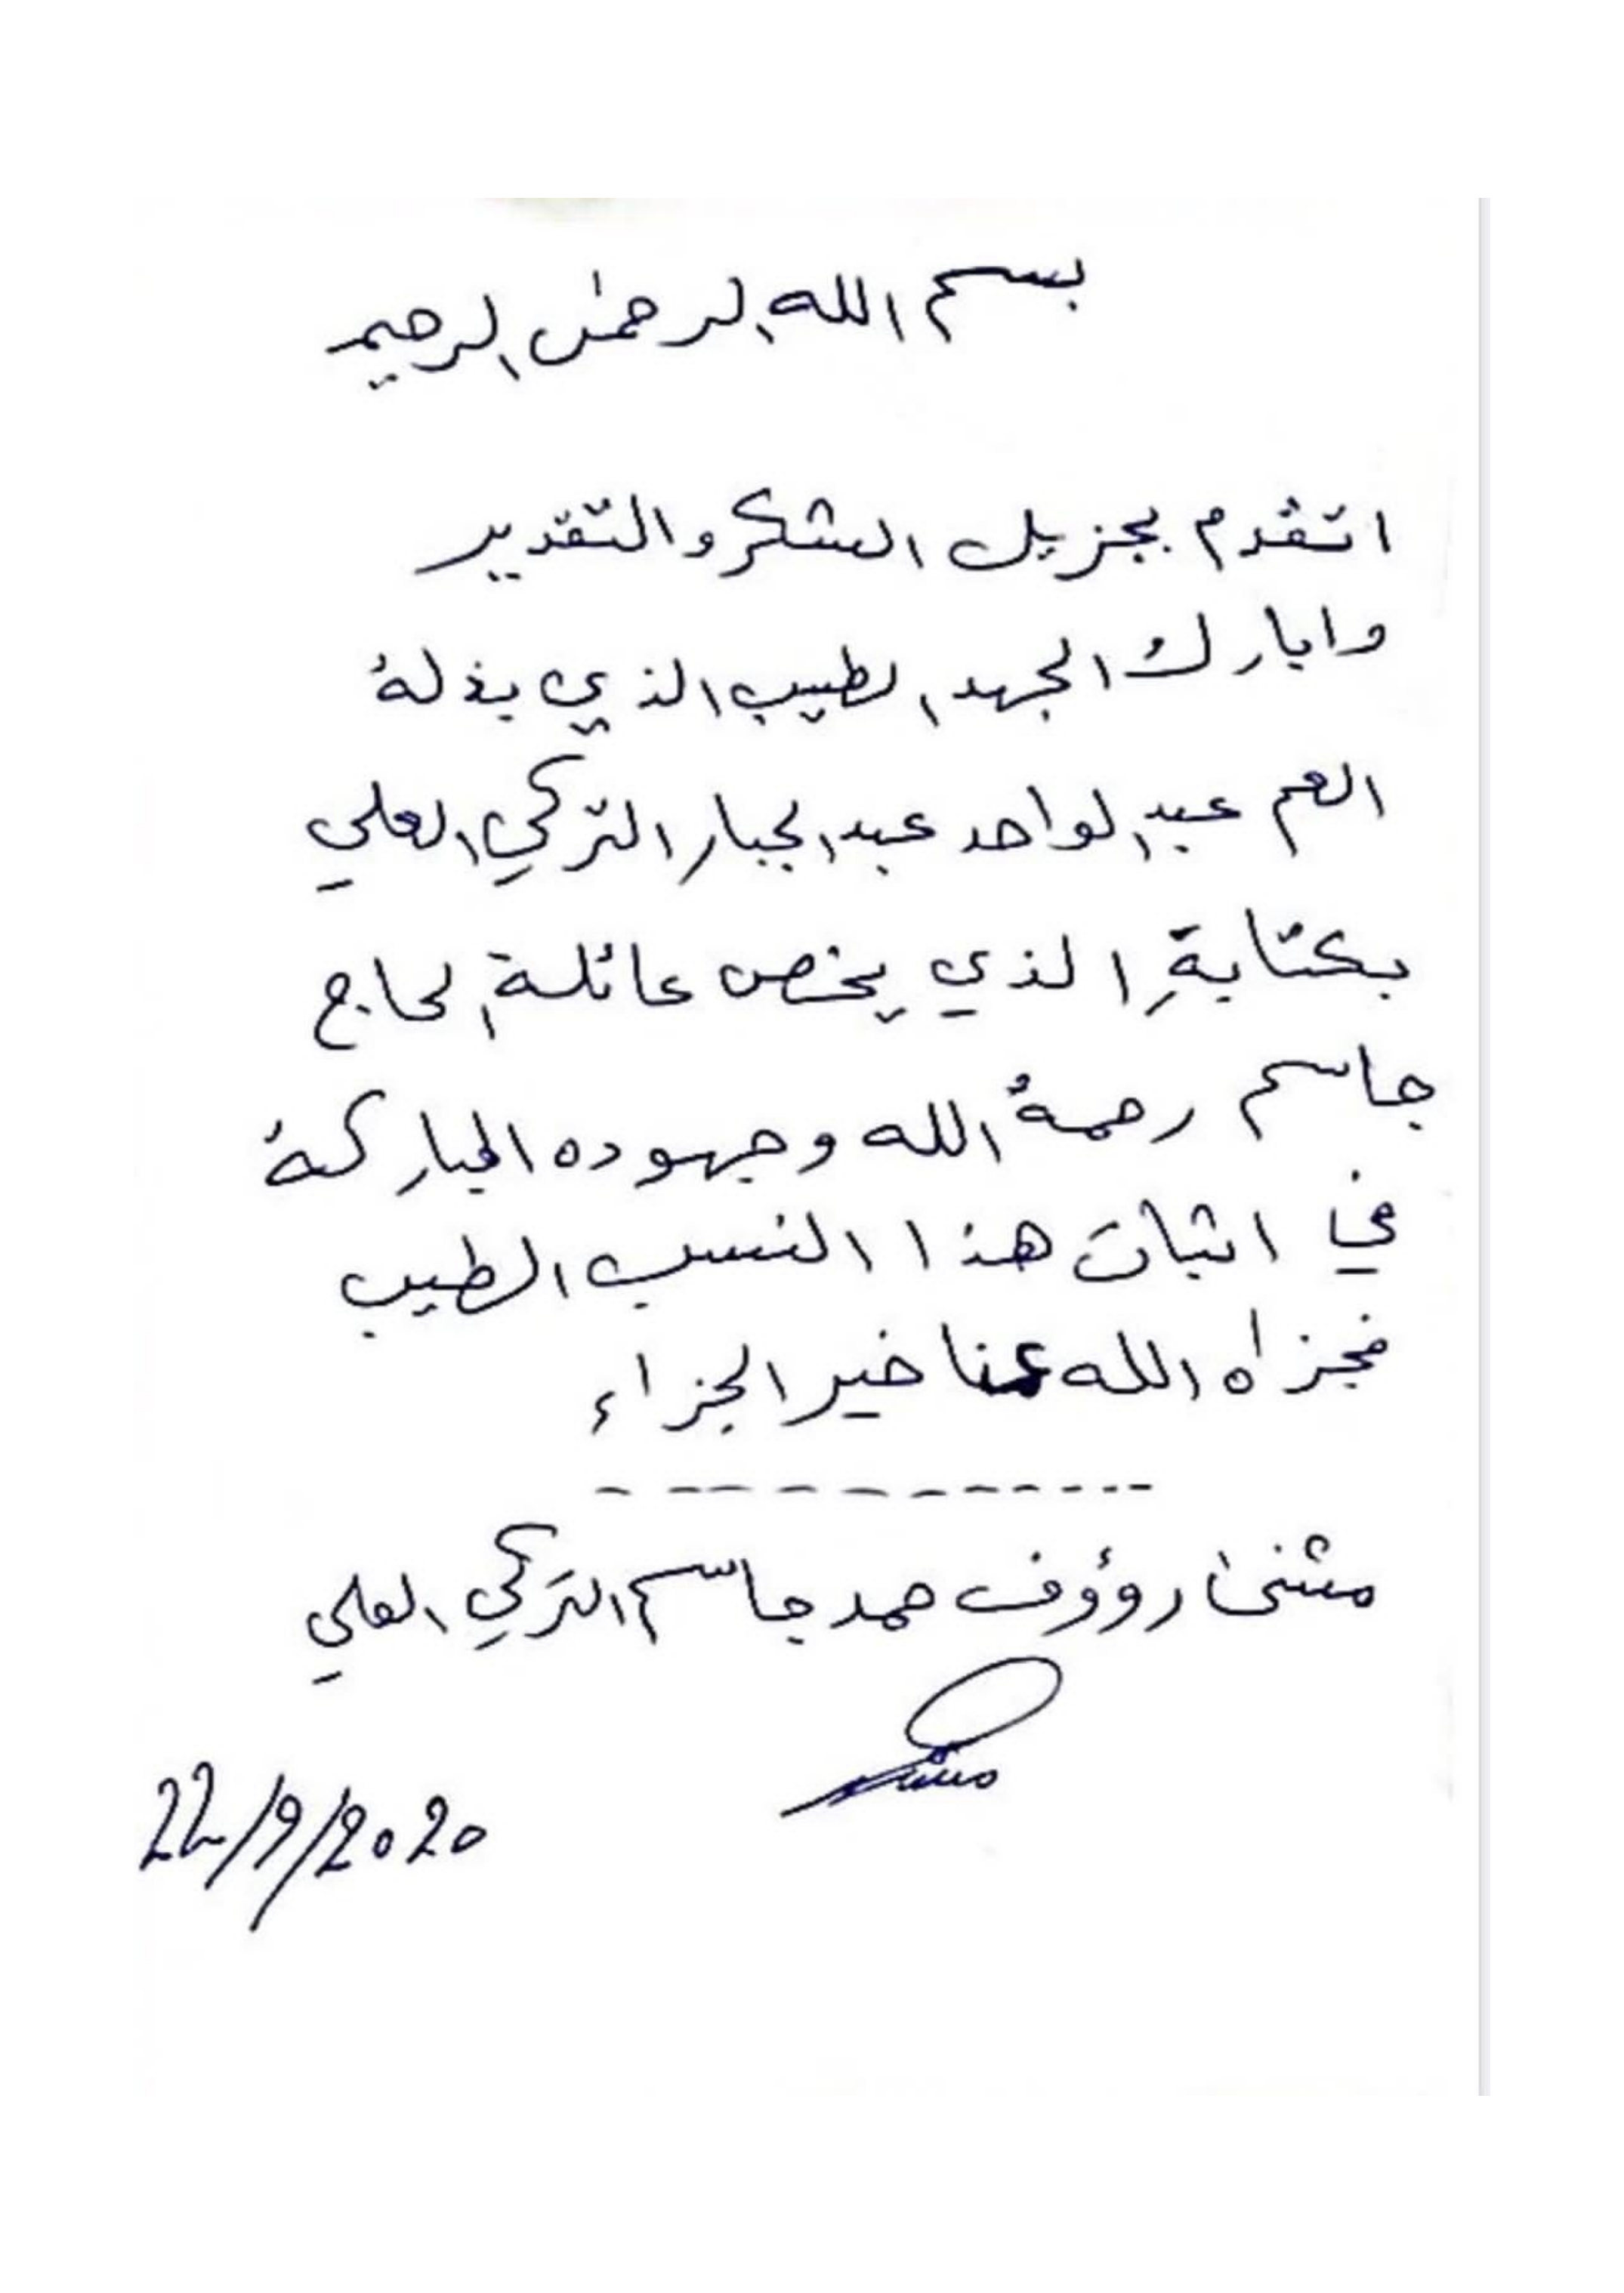 بسم الله الرحمن الرحيم
اتقدم بجزيل الشكر والتقدير
وابارك الجهد الطيب الذي بذلة
العم عبد الواحد عبد الجبار التركي العلي
بكتابة الذي يخص عائلة الحاج
جاسم رحمة الله وجهوده المباركة
في اثبات هذا النسب الطيب
فجزاه الله عنا خير الجزاء
مثنى رؤوف حمد جاسم التركي العلي
22/9/2020